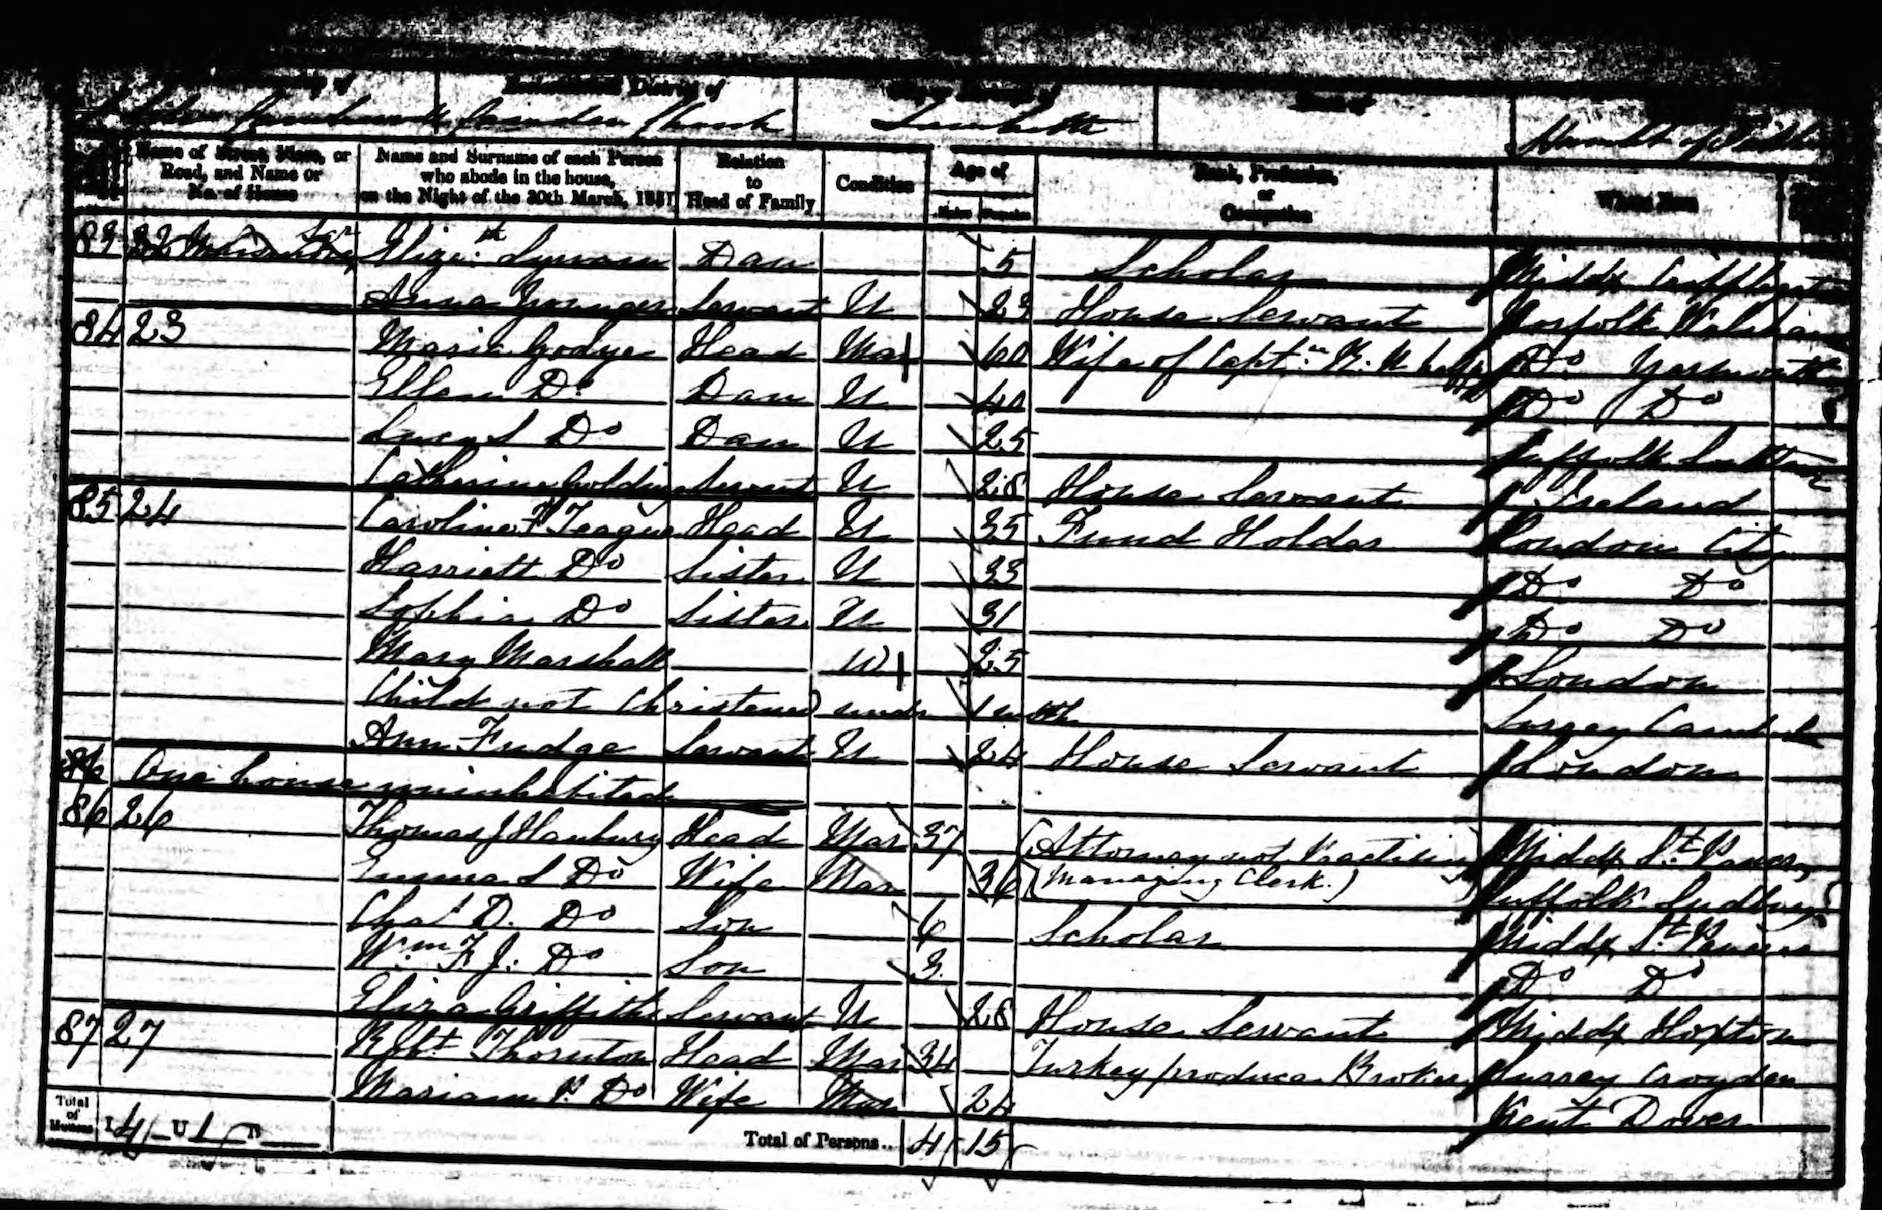 Camden Church Lambeth Hamlet of
Name of Street, Place, or Road, and Name or No. of House
Name and Surname of each Person who abode in the house, on the Night of the 30th March, 1851
Relation to Head of Family
Condition
Age of
Males Females
Rank, Profession, or Occupation
Where Born
83 Eliz.th Dau 5 Scholar Middx
Anna Younger Servant U 23 House Servant Norfolk Walsham
84 23 Maria Godye Head Mar 60 Wife of Capt.n R. N. Do Yarmouth
Ellen Do Dau U 40 Do Do
Lucy S Do Dau U 25 Suffolk
Catherine Servant U 28 House Servant Ireland
85 24 Caroline F Teague Head U 35 Fund Holder London City
Harriett Do Sister U 33 Do Do
Sophia Do Sister U 31 Do Do
Mary Marshall W 25 London
Child not Christened under 1 mth Surrey
Ann Fudge Servant U 24 House Servant London
One house uninhabited
86 26 Thomas J Hanbury Head Mar 37 (Attorney not Practising Middx St Pancras
Emma S Do Wife Mar 36 (Managing Clerk.) Suffolk Sudbury
Chas D. Do Son 6 Scholar Middx St Pancras
Wm F J. Do Son 3 Do Do
Eliza Griffiths Servant U 28 House Servant Middx Hoxton
87 27 Robt Thornton Head Mar 34 Turkey produce Broker Surrey Croydon
Mariann Do Wife Mar 24 Kent Dover
Total of Houses I 4 U 1 B Total of Persons.. 4 15